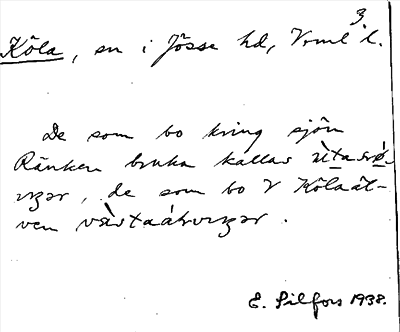 3.
Köla, sn i Jösse hd, Vrml l.
De som bo kring sjön
Ränken bruka kallas
, de som bo V Kölaäl-
ven
E. Silfors 1938.